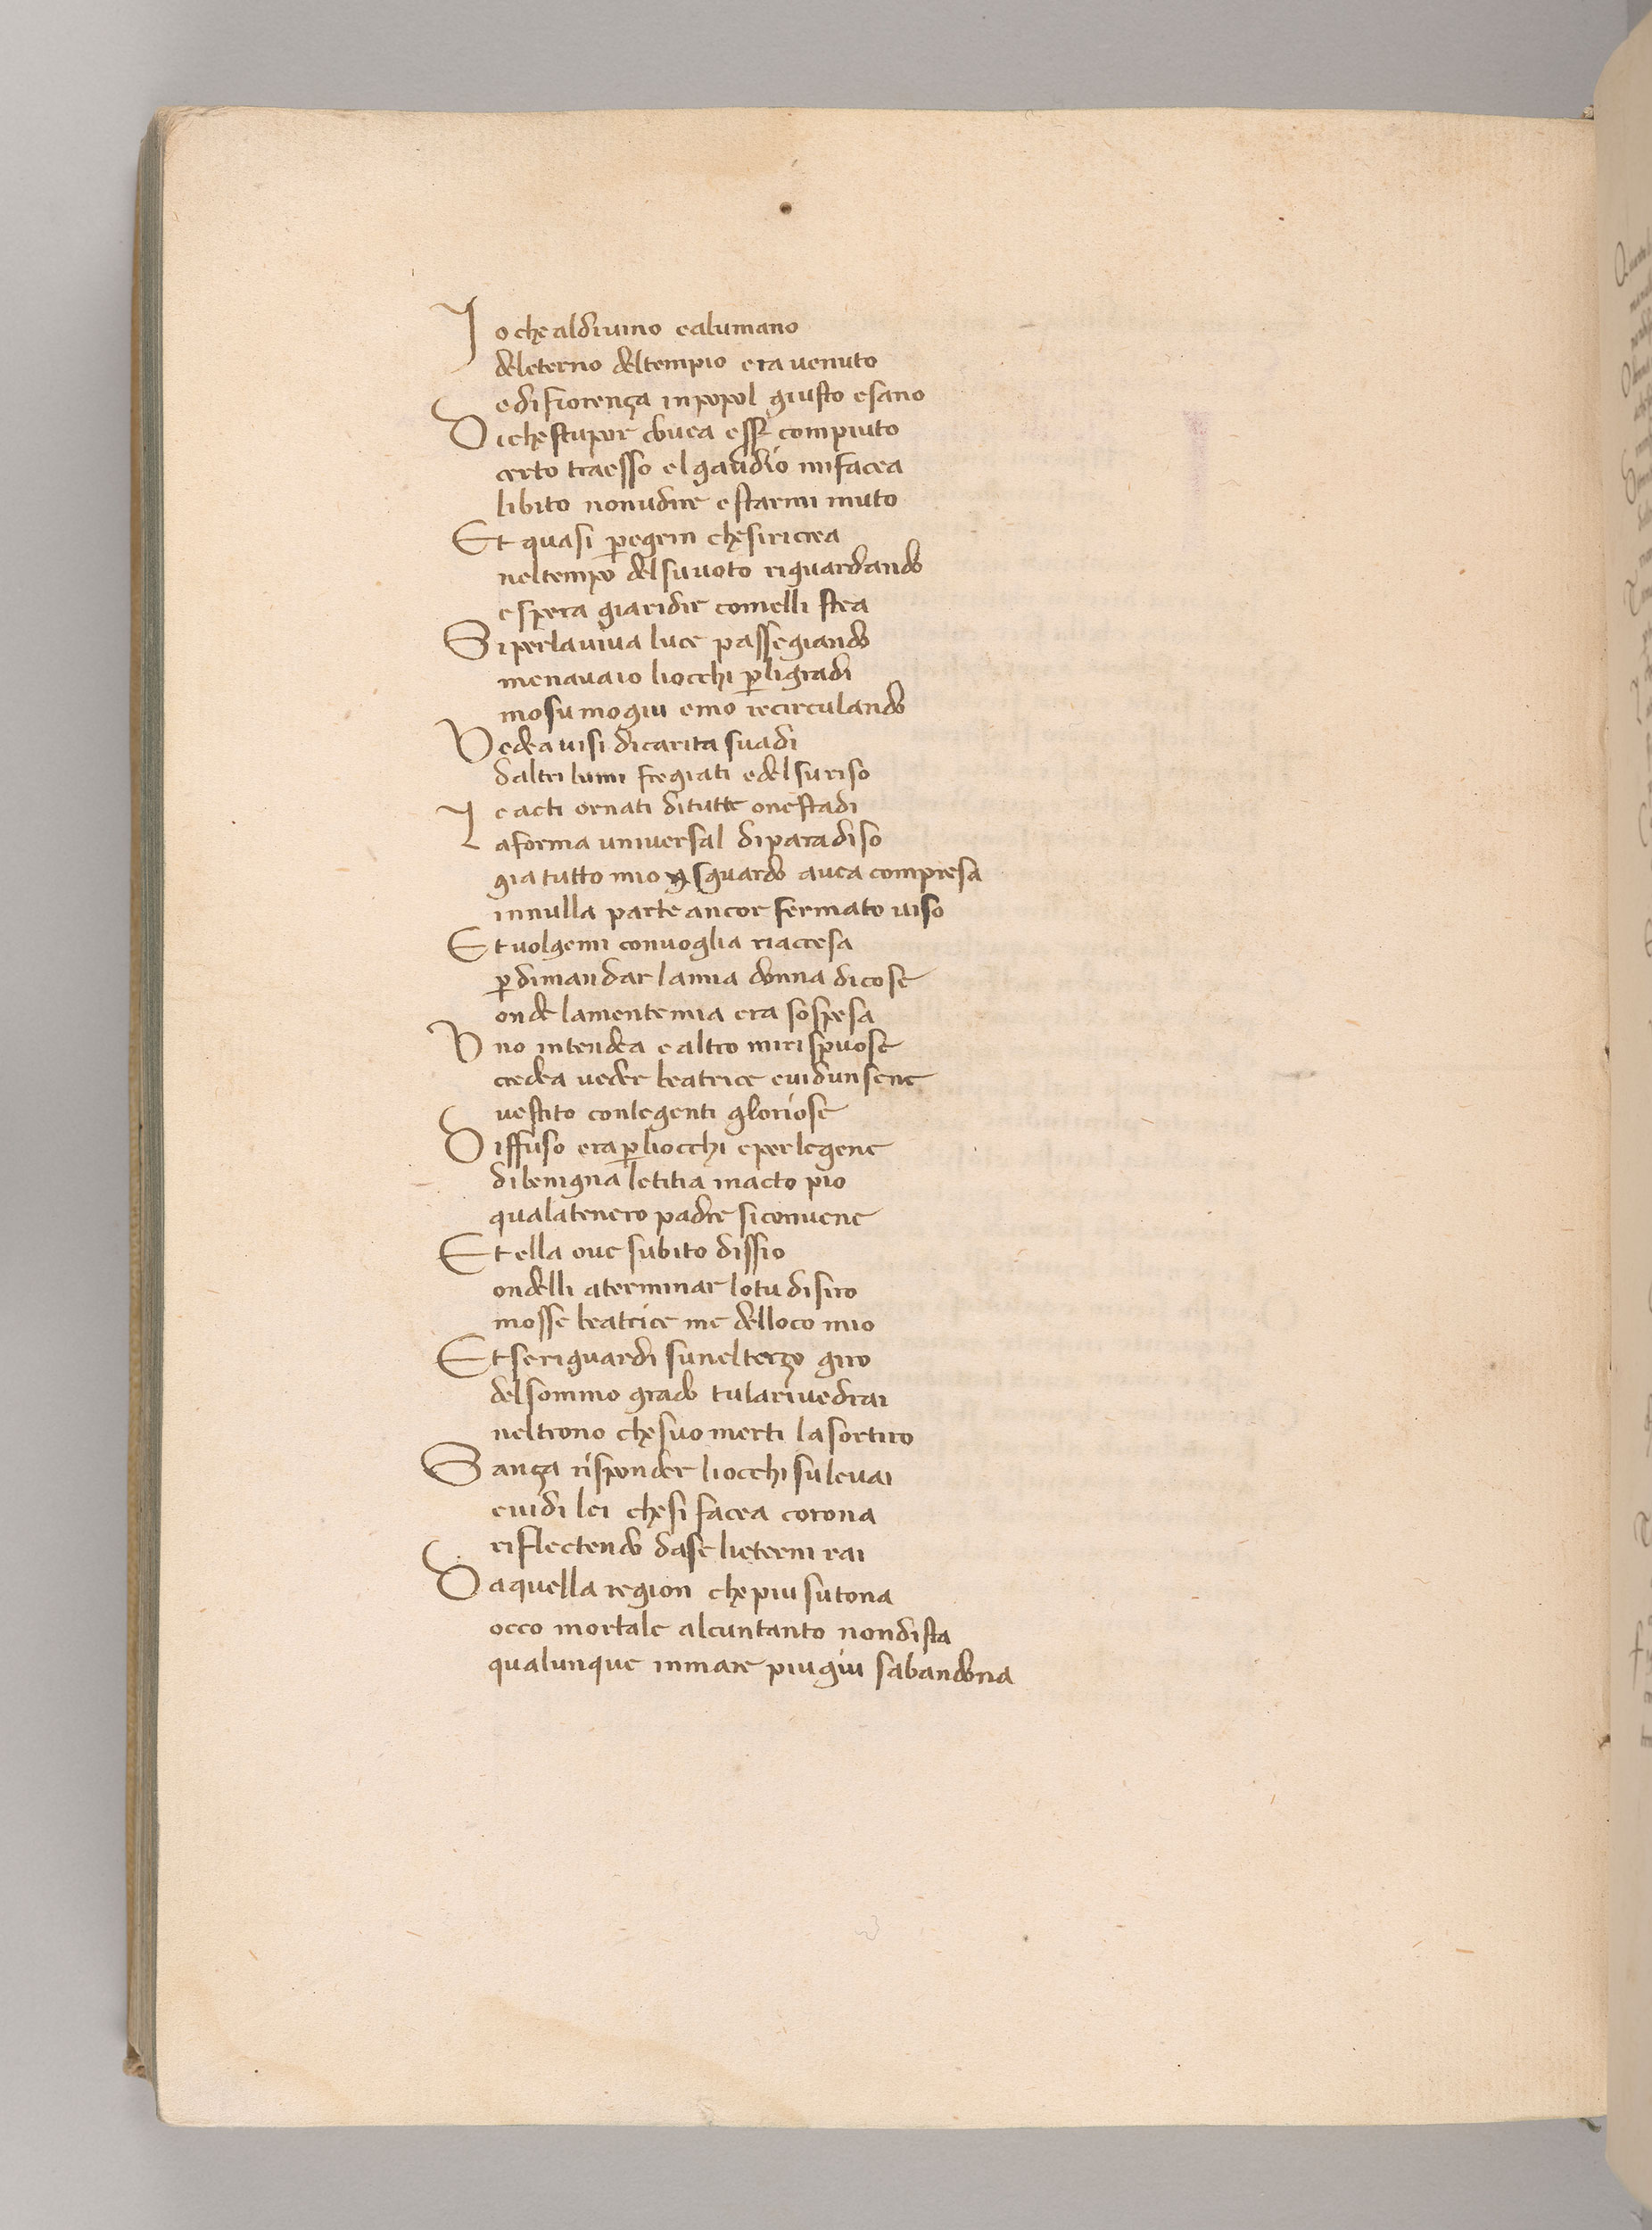 Io che aldiuino ealumano
deleterno deltempio era uenuto
edifiorença inpopol giusto esano
Diche stupor douea esser compiuto
certo traesso elgaudio mifacea
libito nonudire estarmi muto
Et quasi peregrin chesiricrea
neltempo delsuuoto riguardando
espera giaridir comelli stea
Siperlauiua luce passegiando
menauaio liocchi perligradi
mosu mogiu emo recirculando
Vedea uisi dicarita suadi
daltri lumi fregiati edelsuriso
e acti ornati ditutte onestadi
Laforma uniuersal diparadiso
gia tutto mio sguardo auea compresa
innulla parte ancor fermato uiso
Et uolgemi conuoglia riaccesa
perdimandar lamia donna dicose
onde lamentemia era sospesa
Vno intendea e altro mirispuose
credea ueder beatrice euidunsene
uestito conlegenti gloriose
Diffuso era perliocchi eperlegene
dibenigna letitia inacto pio
qualatenero padre siconuene
Et ella oue subito dissio
ondelli aterminar lotu disiro
mosse beatrice me delloco mio
Et seriguardi sunelterzo giro
delsommo grado tularivedrai
neltrono chesuo merti lasortiro
Sança risponder liocchi suleuai
euidi lei chesi facea corona
riflectendo dase lieterni rai
Daquella region chepiu sutona
occo mortale alcuntanto nondista
qualunque inmare piugiu sabandona